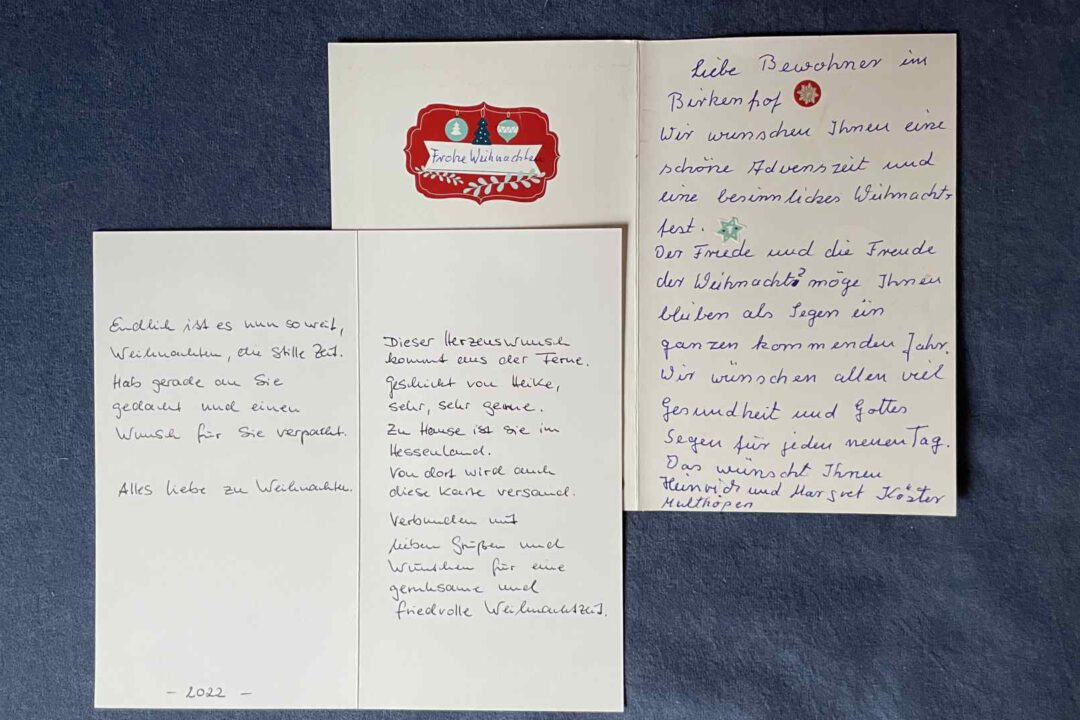 Frohe Weihnachten
Liebe Bewohner im
Birkenhof
Wir wunschen Ihnen eine
schöne Advenszeit und
eine besinnliches Weihnachts
fest.
Der Friede und die Freude
der Weihnacht möge Ihnen
bleiben als Segen ein
ganzen kommenden Jahr.
Wir wünschen allen viel
Gesundheit und Gottes
Segen für jeden neuen Tag.
Das wünscht Ihnen
Heinrich und Margret Köster
Multhöpen
Endlich ist es nun soweit,
Weihnachten, die stille Zeit.
Hab gerade an Sie
gedacht und einen
Wunsch für Sie verpackt.
Alles liebe zu Weihnachten.
- 2022 -
Dieser Herzenswunsch
kommt aus der Ferne.
Geschickt von Heike,
sehr, sehr gerne.
Zu Hause ist sie im
Hessenland.
Von dort wird auch
diese Karte versand.
Verbunden mit
lieben Grüßen und
Wünschen für eine
geruhsame und
friedvolle Weihnachtszeit.